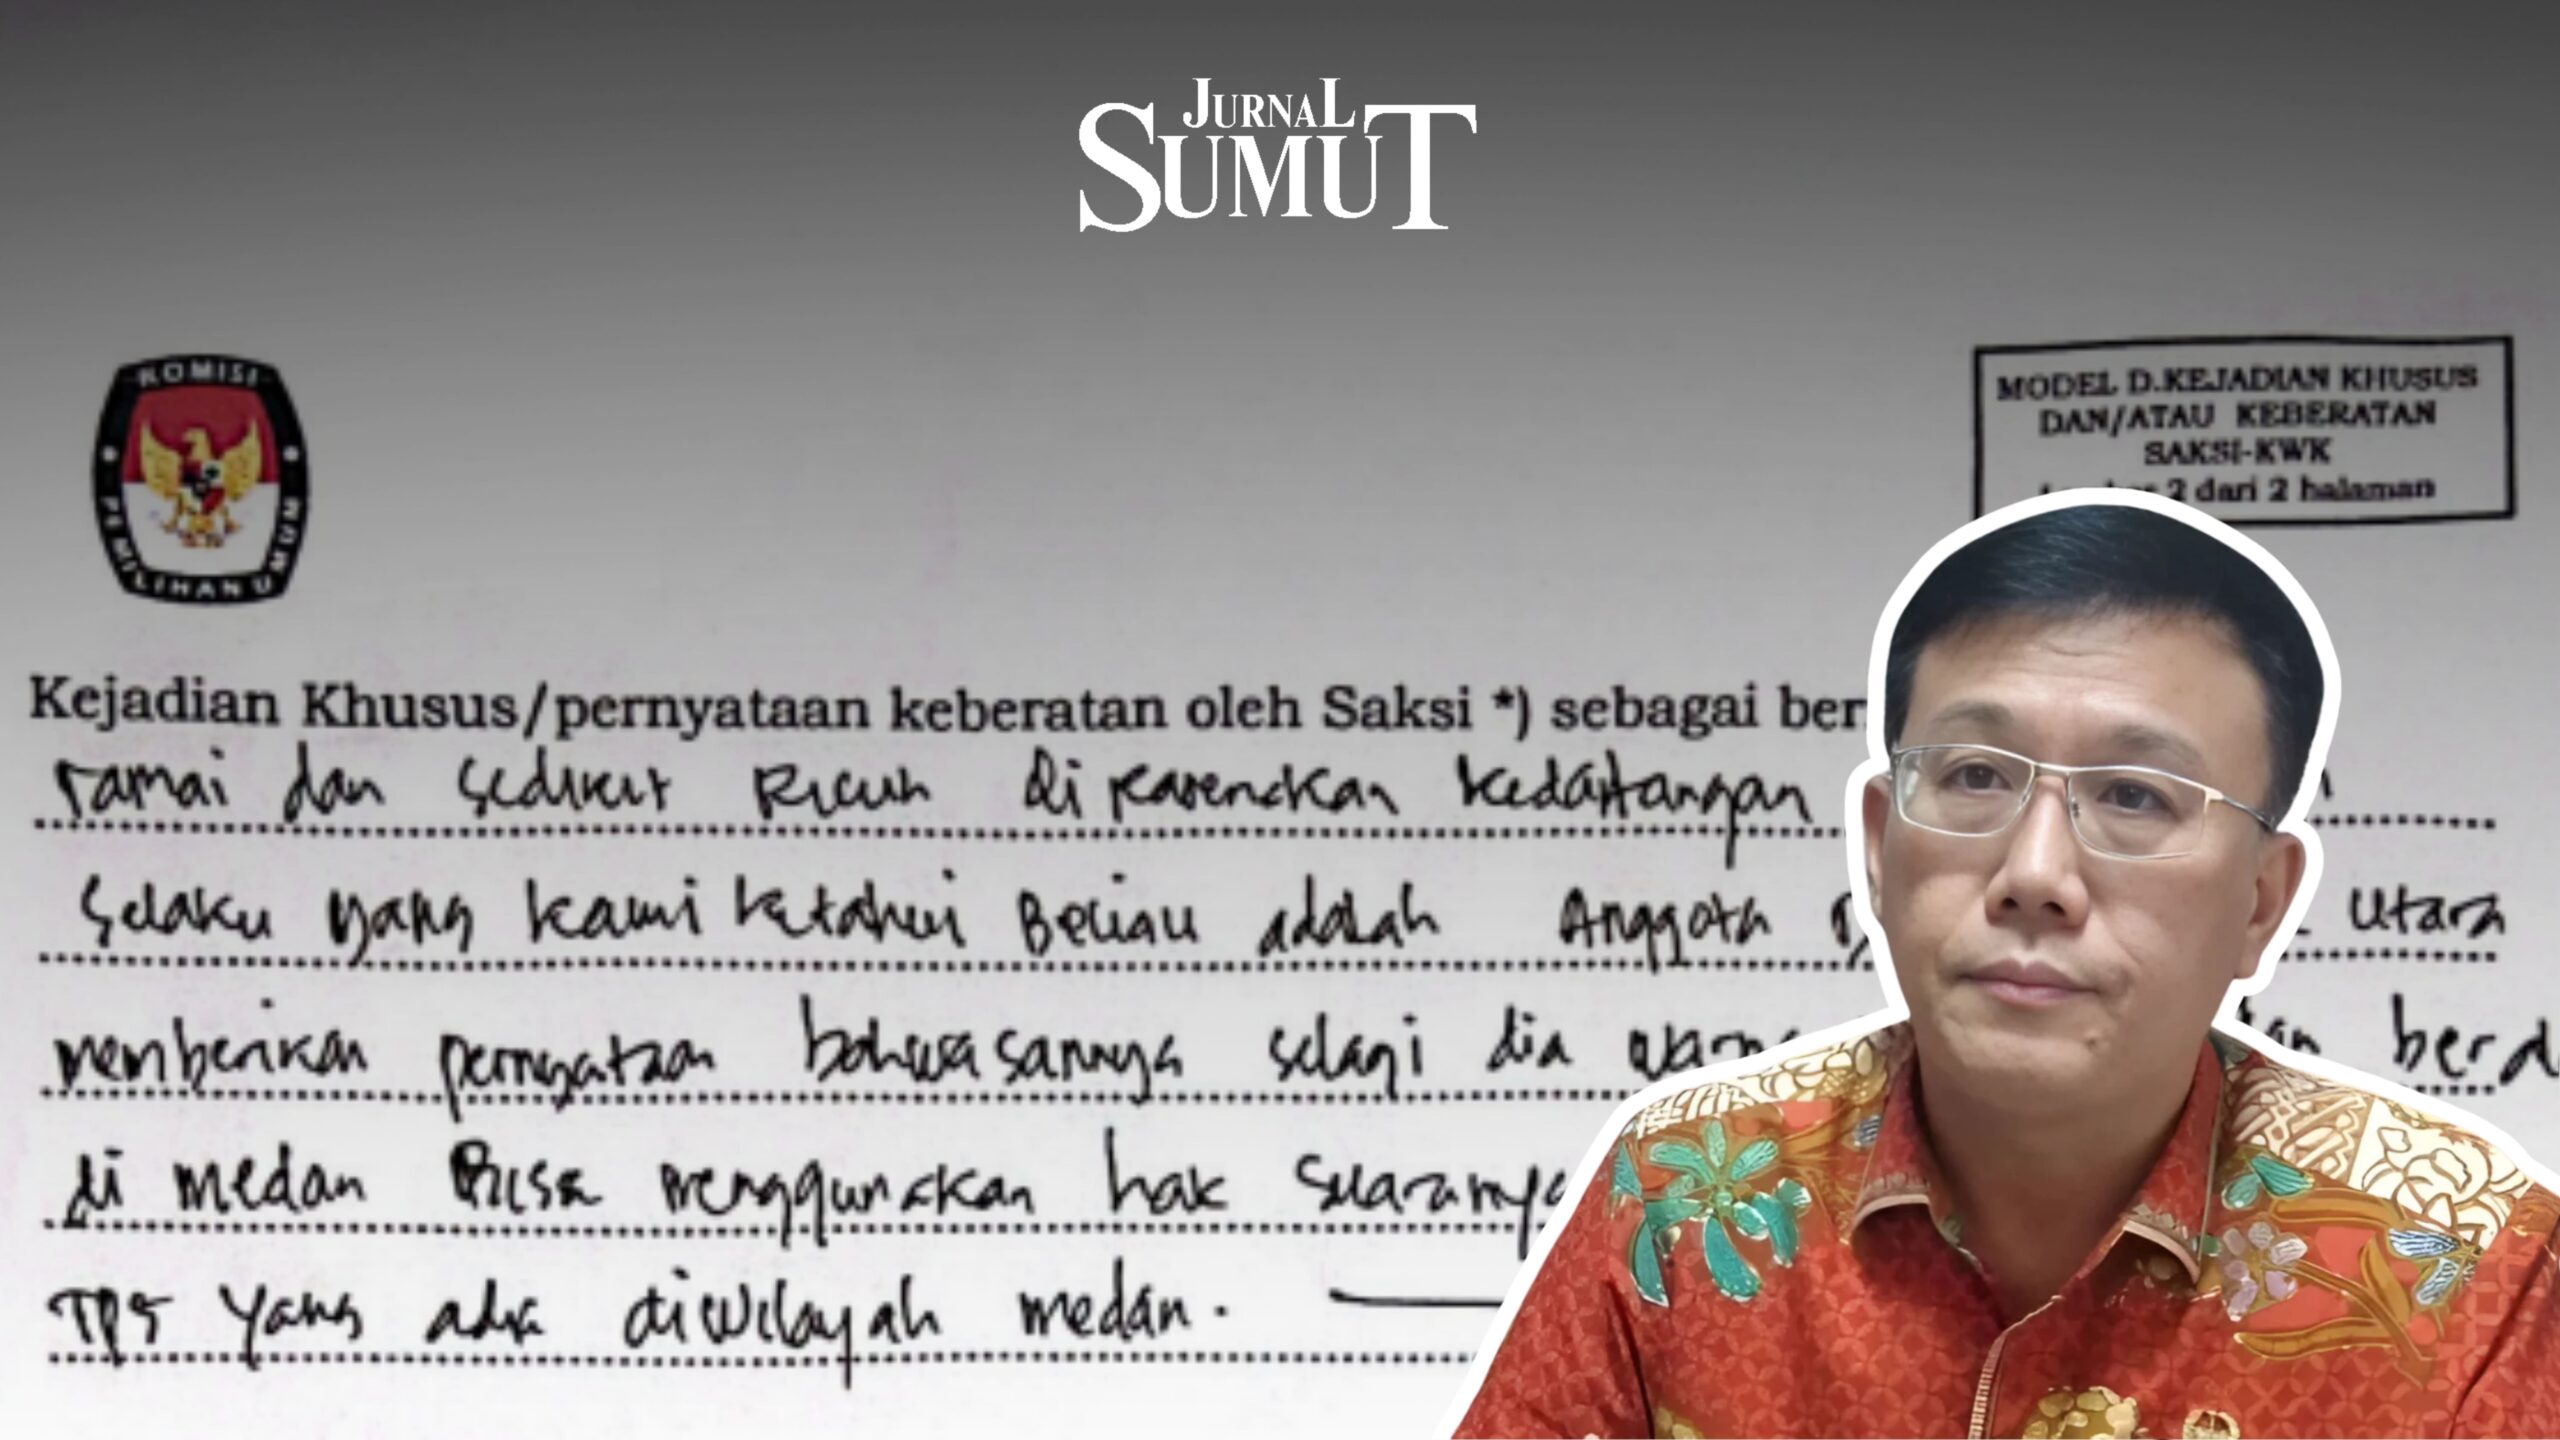 JURNAL
SUMUT
KOMISI
PEMILIHAN UMUM
MODEL D.KEJADIAN KHUSUS
DAN/ATAU KEBERATAN
SAKSI-KWK
2 dari 2 halaman
Kejadian Khusus/pernyataan keberatan oleh Saksi *) sebagai ber
ramai dan sedikit Ricuh Di karenakan kedatangan
Selaku yang kami ketahui Beliau adalah Anggota D Utara
memberikan pernyataan bahwasannya selagi dia warga berd
di medan Bisa menggunakan hak suaranya
TPS yang ada diwilayah medan.